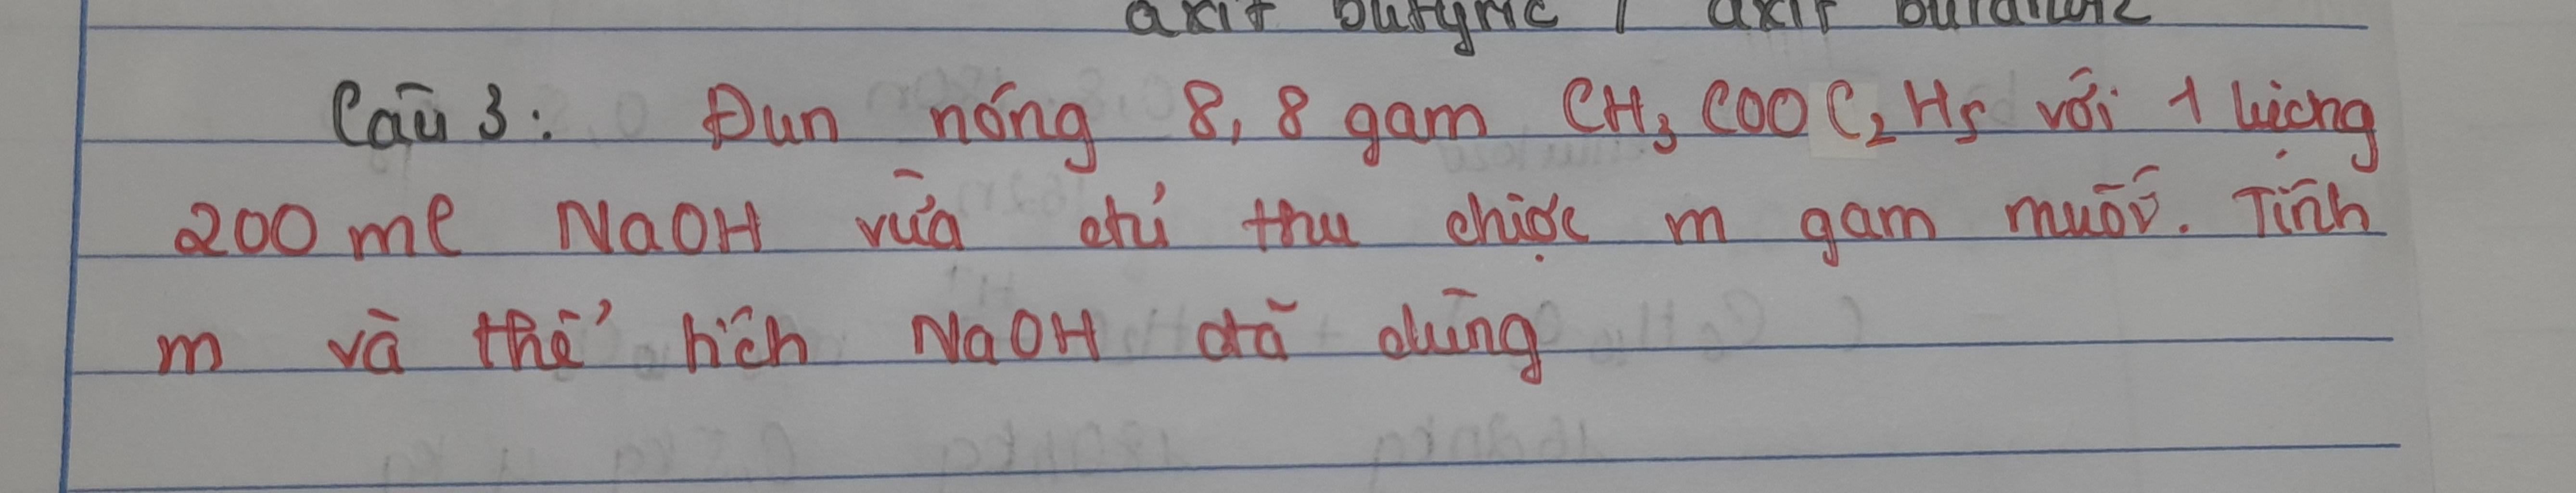 axit butyric / axit butanoic
Câu 3: Đun nóng 8,8 gam CH3COOC2H5 với 1 lượng
200 ml NaOH vừa đủ thu được m gam muối. Tính
m và thể tích NaOH đã dùng